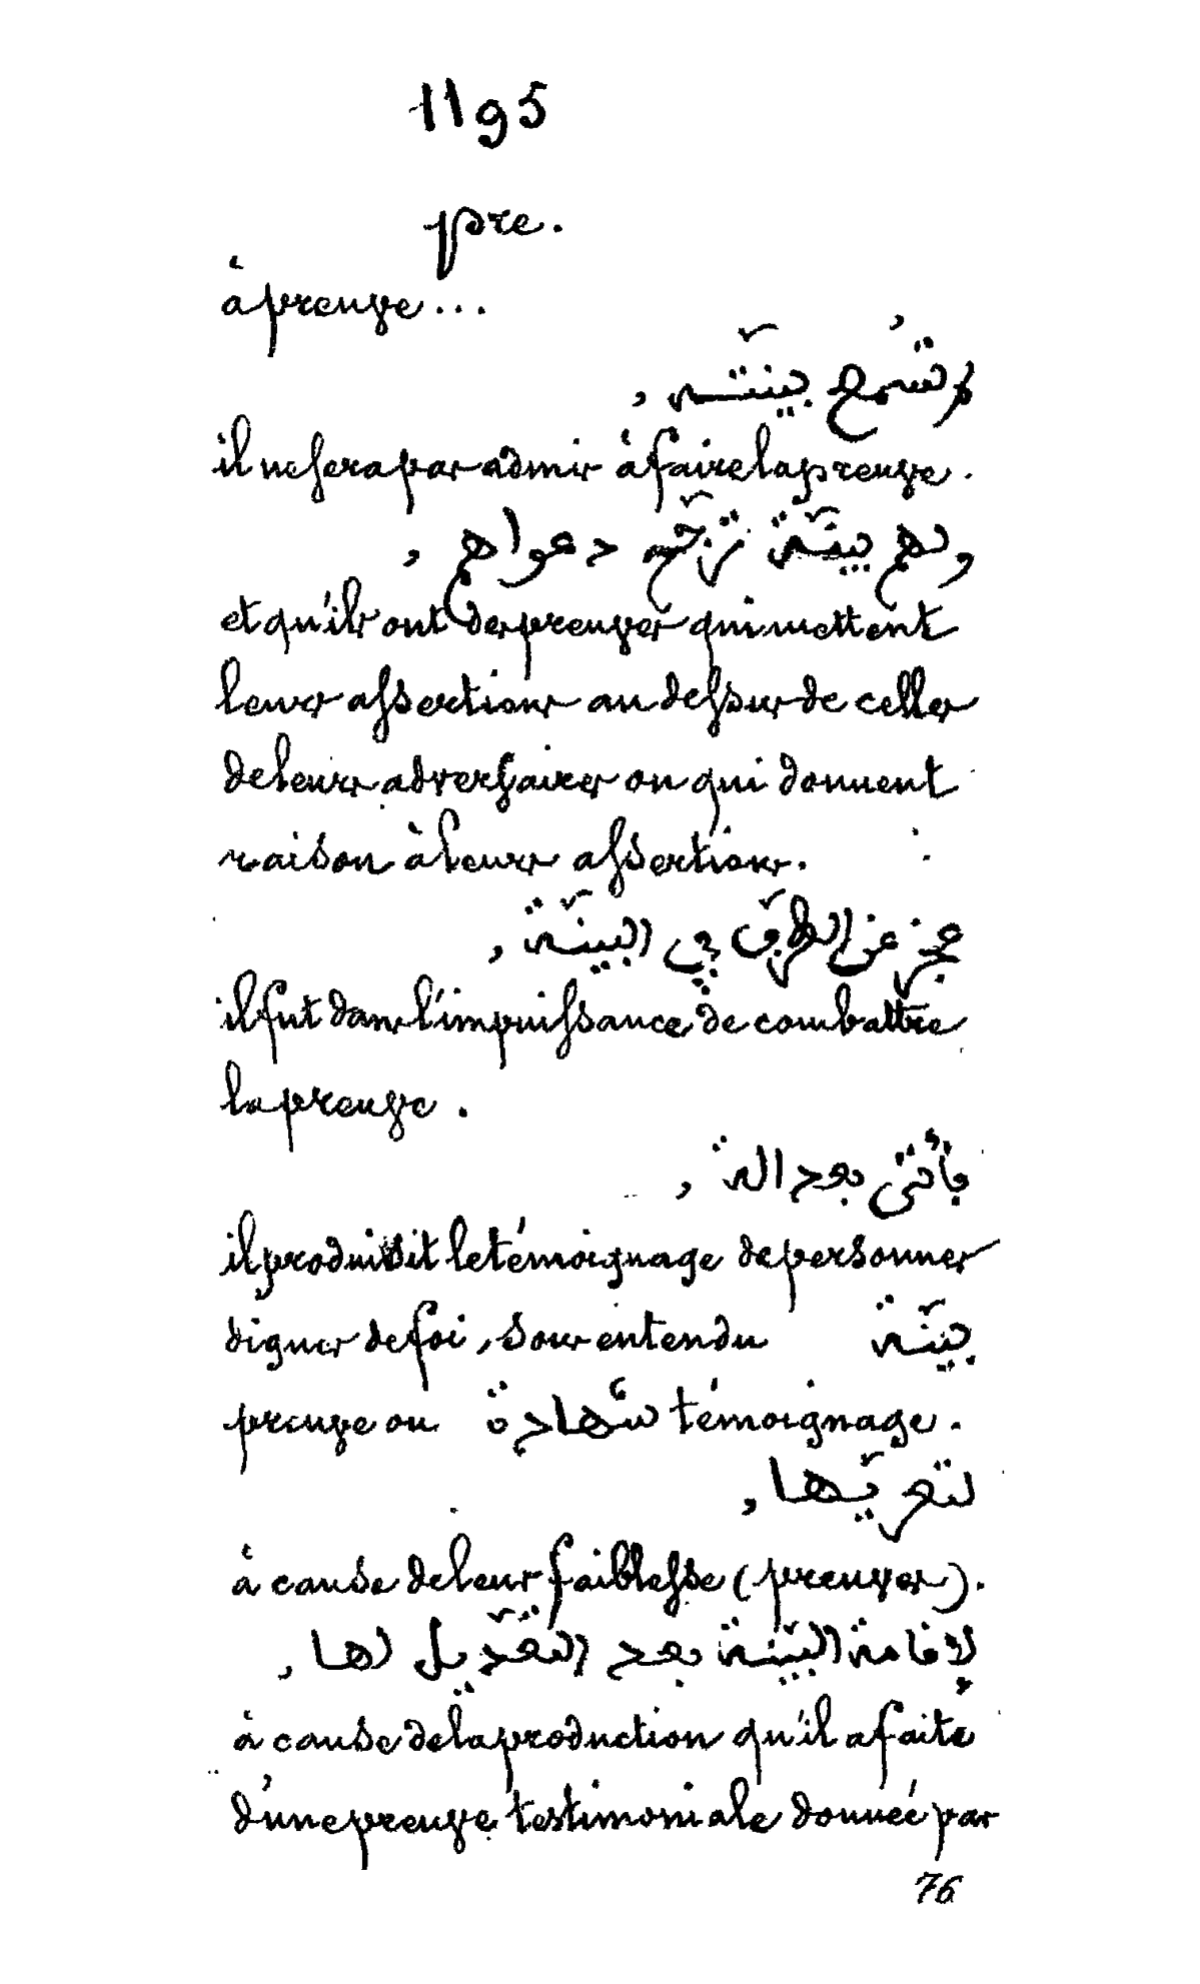 1195
pre.
à preuve...
لا تُسْمع بينّته ,
il ne sera pas admis à faire la preuve.
ولهم بينّة ترجّح دعواهم ,
et qu'ils ont des preuves qui mettent
leurs assertions au dessus de celles
de leurs adversaires ou qui donnent
raison à leurs assertions.
عجز عن الطّرق في البينّة ,
il fut dans l'impuissance de combattre
la preuve.
بعدالة ,
il produisit le témoignage de personnes
dignes de foi, sous entendu بينّة
preuve ou شهادة témoignage.
à cause de leur faiblesse (preuves).
لإقامة البيّنة بعد التعّديل لها ,
à cause de la production qu'il a faite
d'une preuve testimoniale donnée par
76